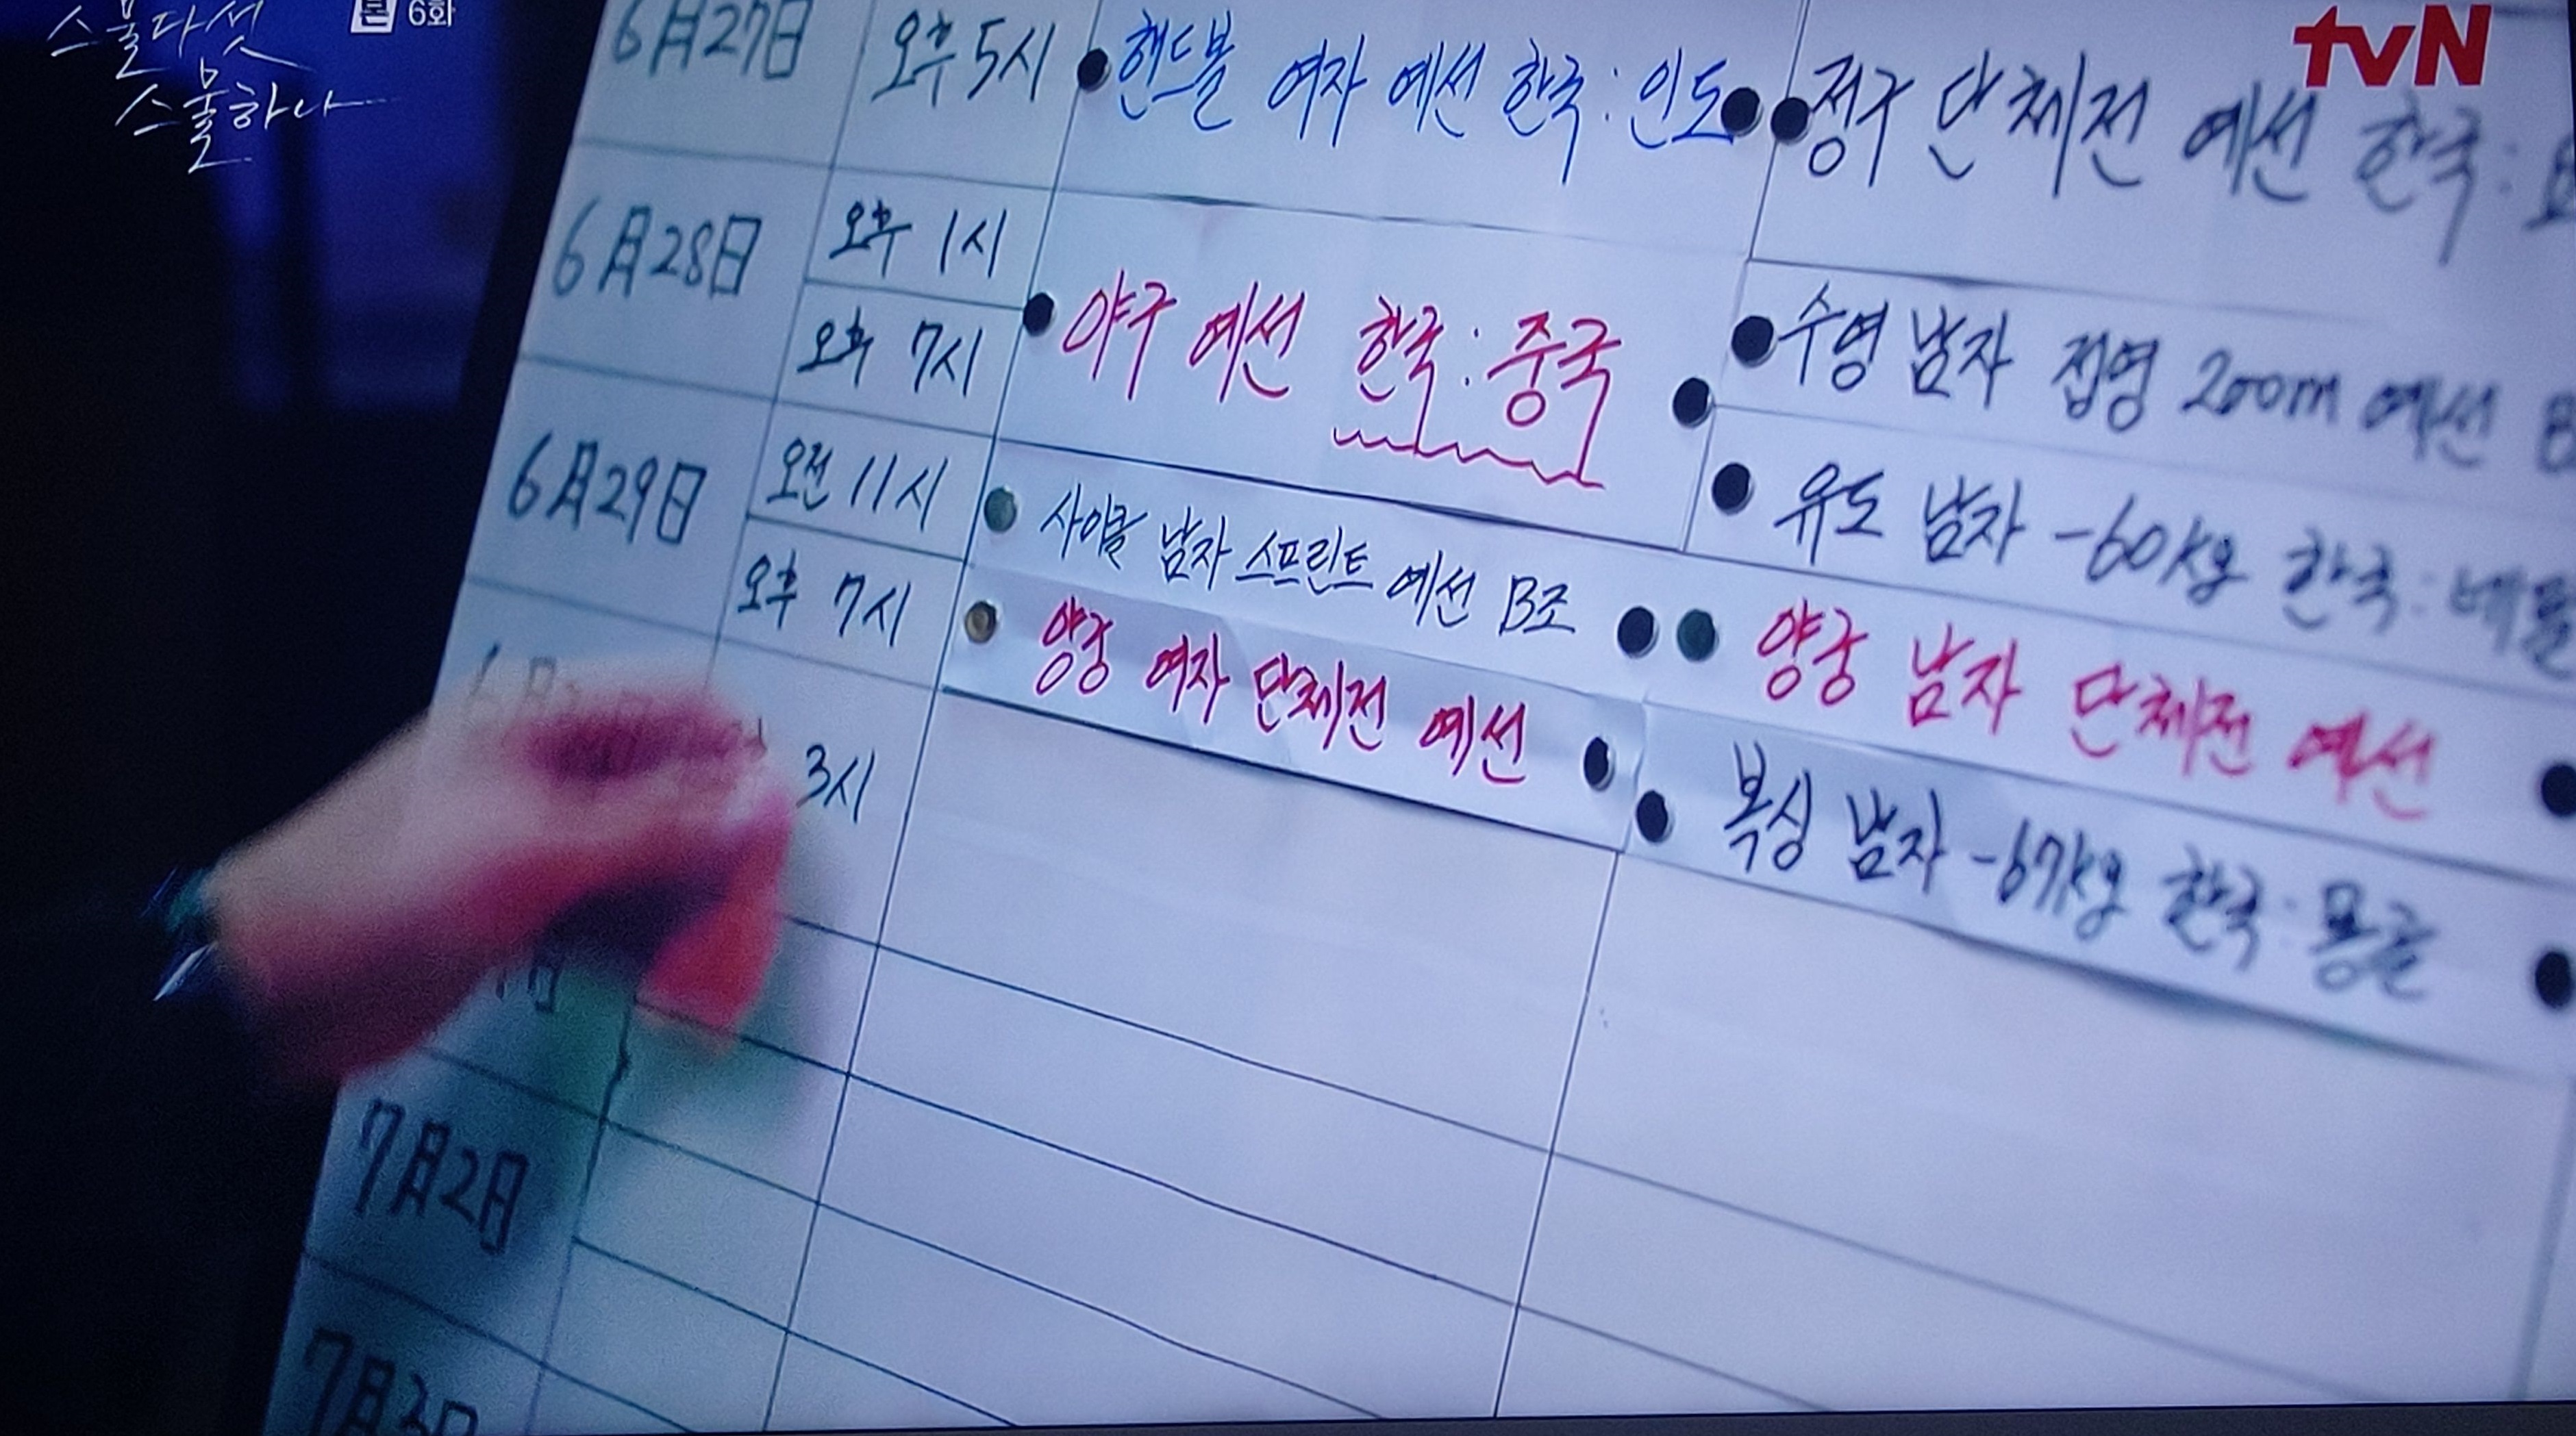 스물다섯
스물하나
본 6화
tvN
6月27日 오후 5시 핸드볼 여자 예선 한국:인도 정구 단체전 예선 한국:
6月28日 오후 1시 야구 예선 한국:중국 수영 남자 접영 200m 예선
오후 7시 유도 남자 -60kg 한국:네팔
6月29日 오전 11시 사이클 남자 스프린트 예선 B조 양궁 남자 단체전 예선
오후 7시 양궁 여자 단체전 예선 복싱 남자 -67kg 한국:몽골
3시
7月2日
7月3日